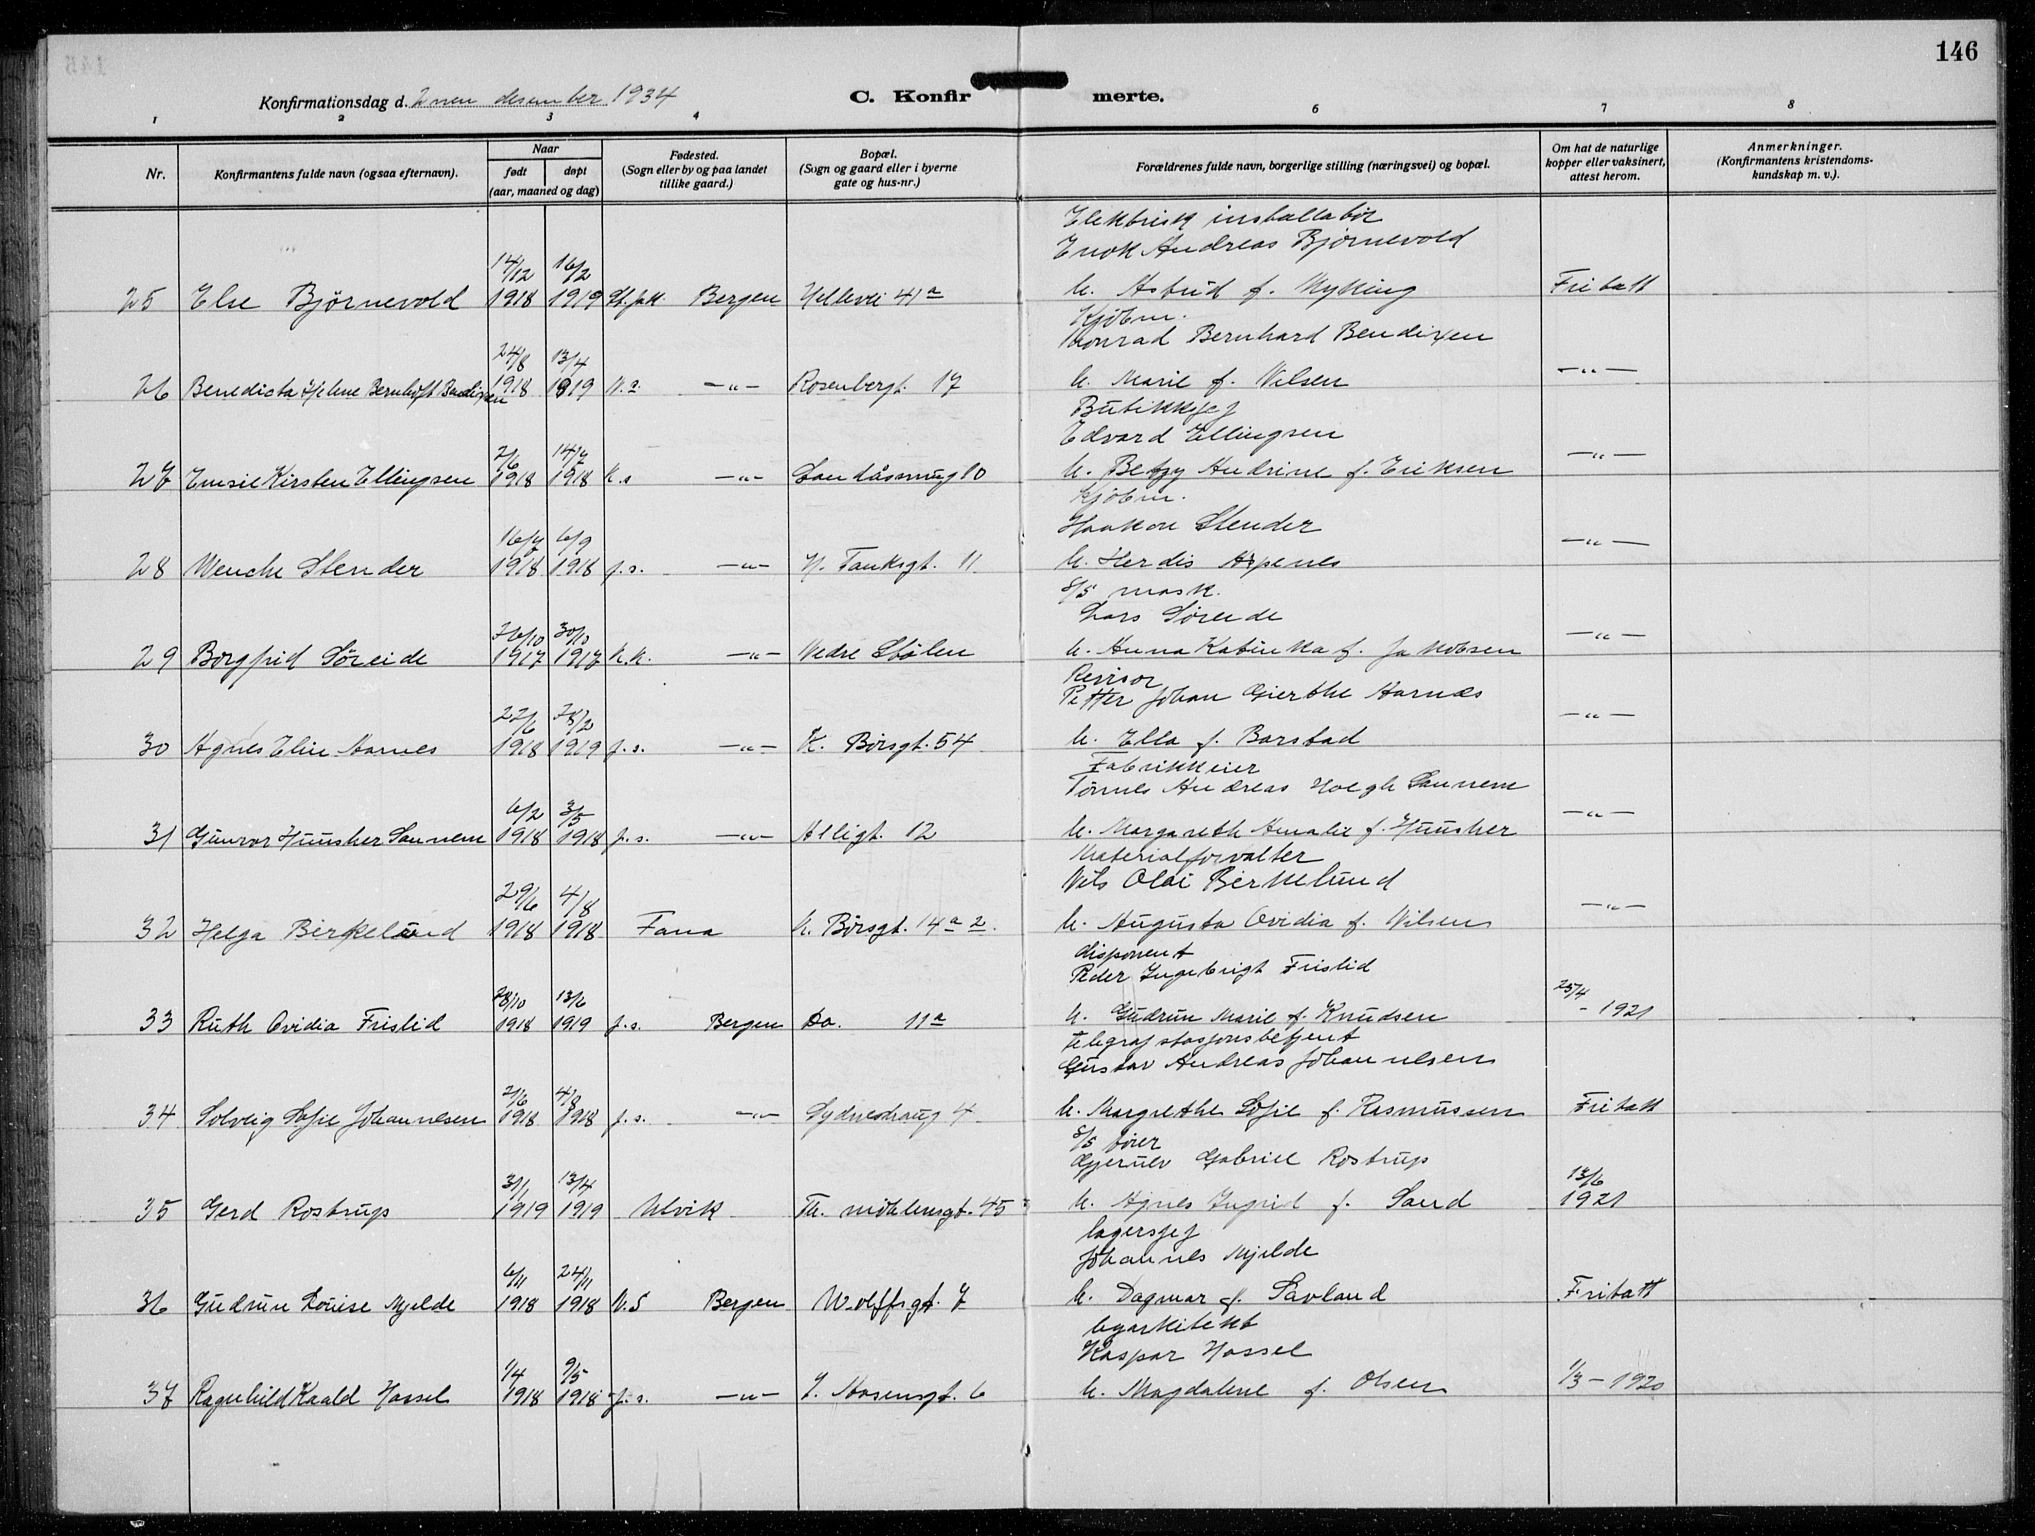 146
Konfirmationsdag d. 2nen desember 1934
C. Konfir merte.
1 2 3 4 6 7 8
Nr.
Konfirmantens fulde navn (ogsaa efternavn).
Naar
født døpt
(aar, maaned og dag)
Fødested.
(Sogn eller by og paa landet
tillike gaard.)
Bopæl.
(Sogn og gaard eller i byerne
gate og hus-nr.)
Forældrenes fulde navn, borgerlige stilling (næringsvei) og bopæl.
Om hat de naturlige
kopper eller vaksinert,
attest herom.
Anmerkninger.
(Konfirmantens kristendoms-
kundskap m. v.).
Elektrisk installatör
Enok Andreas Bjørnevold
14/12 16/2
25 Else Bjørnevold 1918 1919 Bergen Hellevei 41a h. Astrid f. Myking Fritatt
Kjöbm.
Konrad Bernhard Bendixen
24/8 13/4
26 Benedicta Helene Bernhoft Bendixen 1918 1919 N.s. —"— Rosenbergt. 17 h. Marie f. Nilsen —"—
Butikkjef
Edvard Ellingsen
2/6 14/7
27 Emsie Kirsten Ellingsen 1918 1918 N.s —"— Landåsmug 10 h. Betzy Andrine f. Eriksen —"—
Kjöbm.
Haakon Stender
16/7 6/9
28 Wenche Stender 1918 1918 J.s. —"— N. Tanksgt. 11 h. Herdis Aspenes —"—
S/S mask.
Lars Søreide
26/10 30/10
29 Borgfrid Søreide 1917 1917 N.K. —"— Nedre Stölen h. Anna Katinka f. Jakobsen —"—
Revisor
Petter Johan Gierthe Aarnes
22/6 28/2
30 Agnes Elin Aarnes 1918 1919 J.s. —"— K. Börsgt. 54 h. Ella f. Barstad —"—
Fabrikkeier
Tönnes Andreas Hoegh Sannem
6/2 3/5
31 Gunvor Huusher Sannem 1918 1918 J.s. —"— Alligt. 12 h. Margareth Amalie f. Huusher —"—
Materialforvalter
Nils Olai Birkelund
29/6 4/8
32 Helga Birkelund 1918 1918 Fana K. Börsgt. 14a 2. h. Augusta Ovidia f. Nilsen —"—
disponent
Peder Ingebrigt Frislid
28/10 13/6 25/4
33 Ruth Ovidia Frislid 1918 1919 J.s. Bergen Do. 11a h. Gudrun Marie f. Knudsen - 1921
telegrafstasjonsbetjent
Gustav Andreas Johannesen
2/6 4/8
34 Solveig Sofie Johannesen 1918 1918 J.s. —"— Sydneshaug 4 h. Margrethe Sofie f. Rasmussen Fritatt
S/S förer
Gjerulv Gabriel Rostrup
31/1 13/4 13/6
35 Gerd Rostrup 1919 1919 Ulvik Th. möhlensgt. 45 h. Agnes Ingrid f. Sand 1921
lagersjef
Johannes Mjelde
6/11 24/11
36 Gudrun Louise Mjelde 1918 1918 N.S Bergen Wolffsgt. 7 h. Dagmar f. Søvland Fritatt
byarkitekt
Kaspar Hassel
1/4 9/5
37 Ragnhild Kaald Hassel 1918 1918 J.s. —"— I. Aasensgt. 6 h. Magdalene f. Olsen 1/3 - 1920